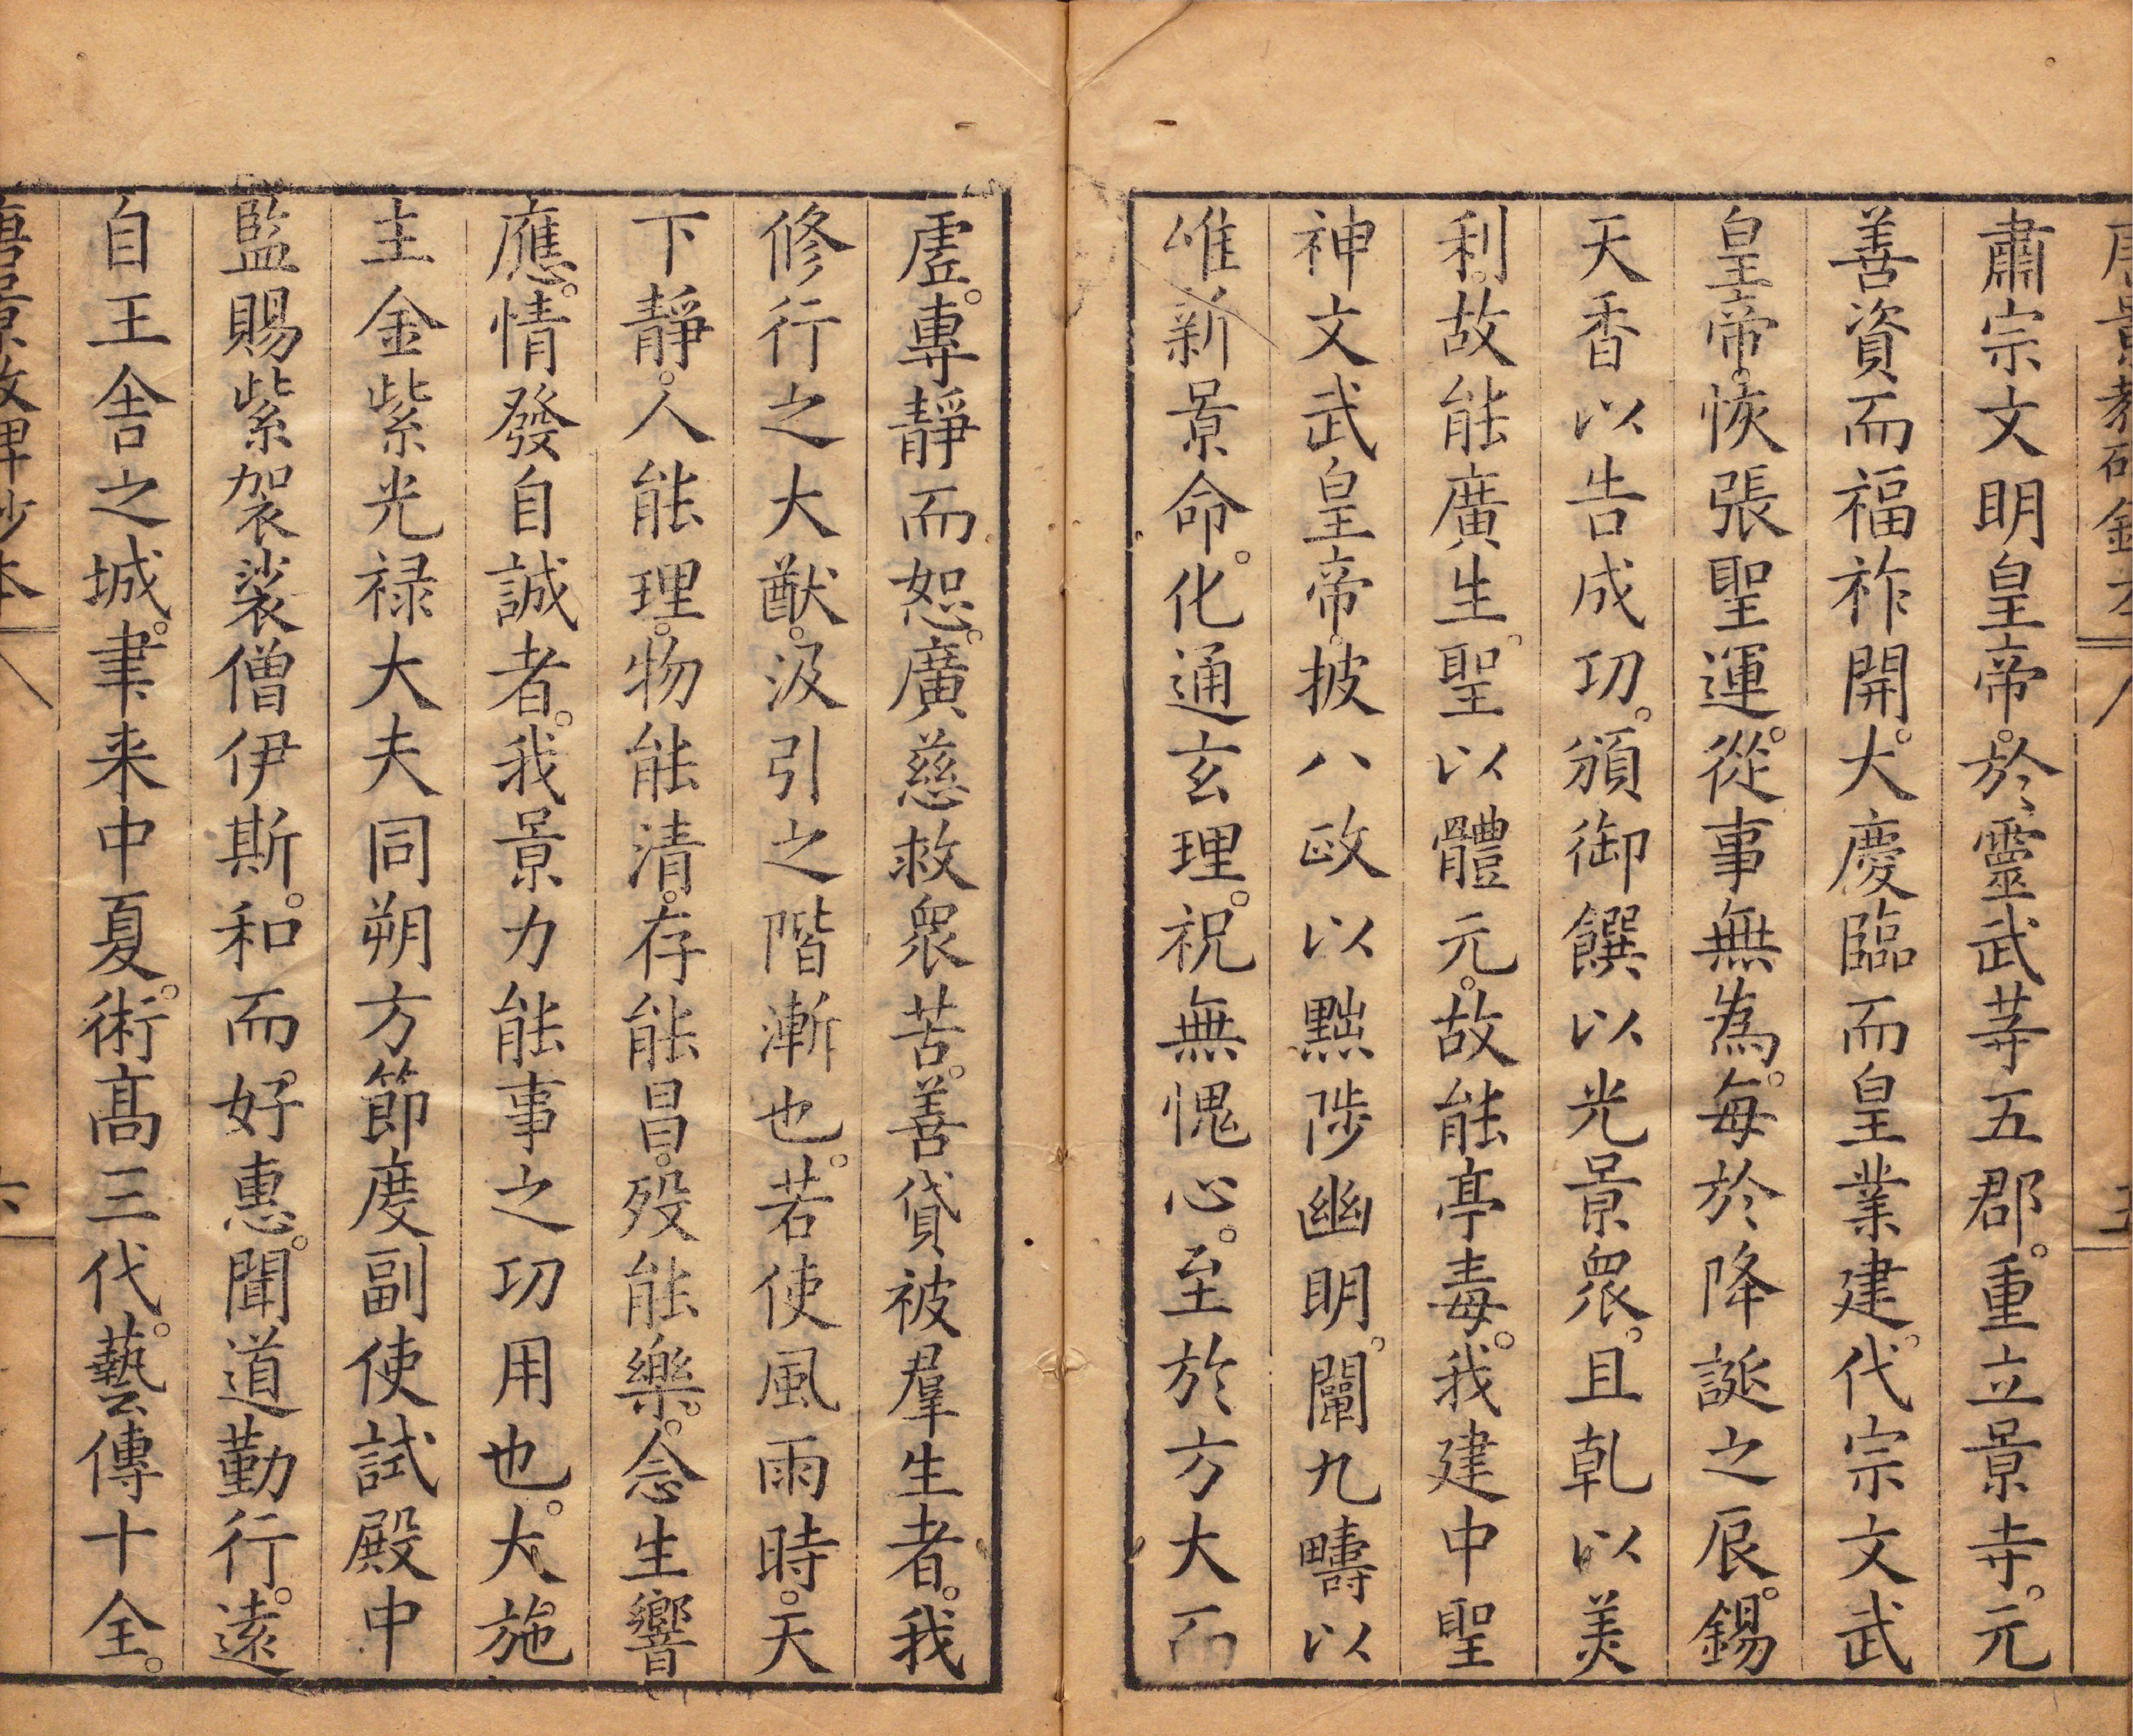 肅宗文明皇帝。於靈武等五郡。重立景寺。元
善資而福祚開。大慶臨而皇業建。代宗文武
皇帝。恢張聖運。從事無為。每於降誕之辰。錫
天香以告成功。頒御饌以光景眾。且乹以美
利。故能廣生。聖以體元。故能亭毒。我建中聖
神文武皇帝。披八政以黜陟幽明。闡九疇以
惟新景命。化通玄理。祝無愧心。至於方大而
虛。專靜而恕。廣慈救眾苦。善貸被羣生者。我
修行之大猷。汲引之階漸也。若使風雨時。天
下靜。人能理。物能清。存能昌。歿能樂。念生響
應。情發自誠者。我景力能事之功用也。大施
主金紫光禄大夫同朔方節度副使試殿中
監賜紫袈裟僧伊斯。和而好惠。聞道勤行。遠
自王舍之城。聿来中夏。術高三代。藝傳十全。
唐景教碑鈔本 六